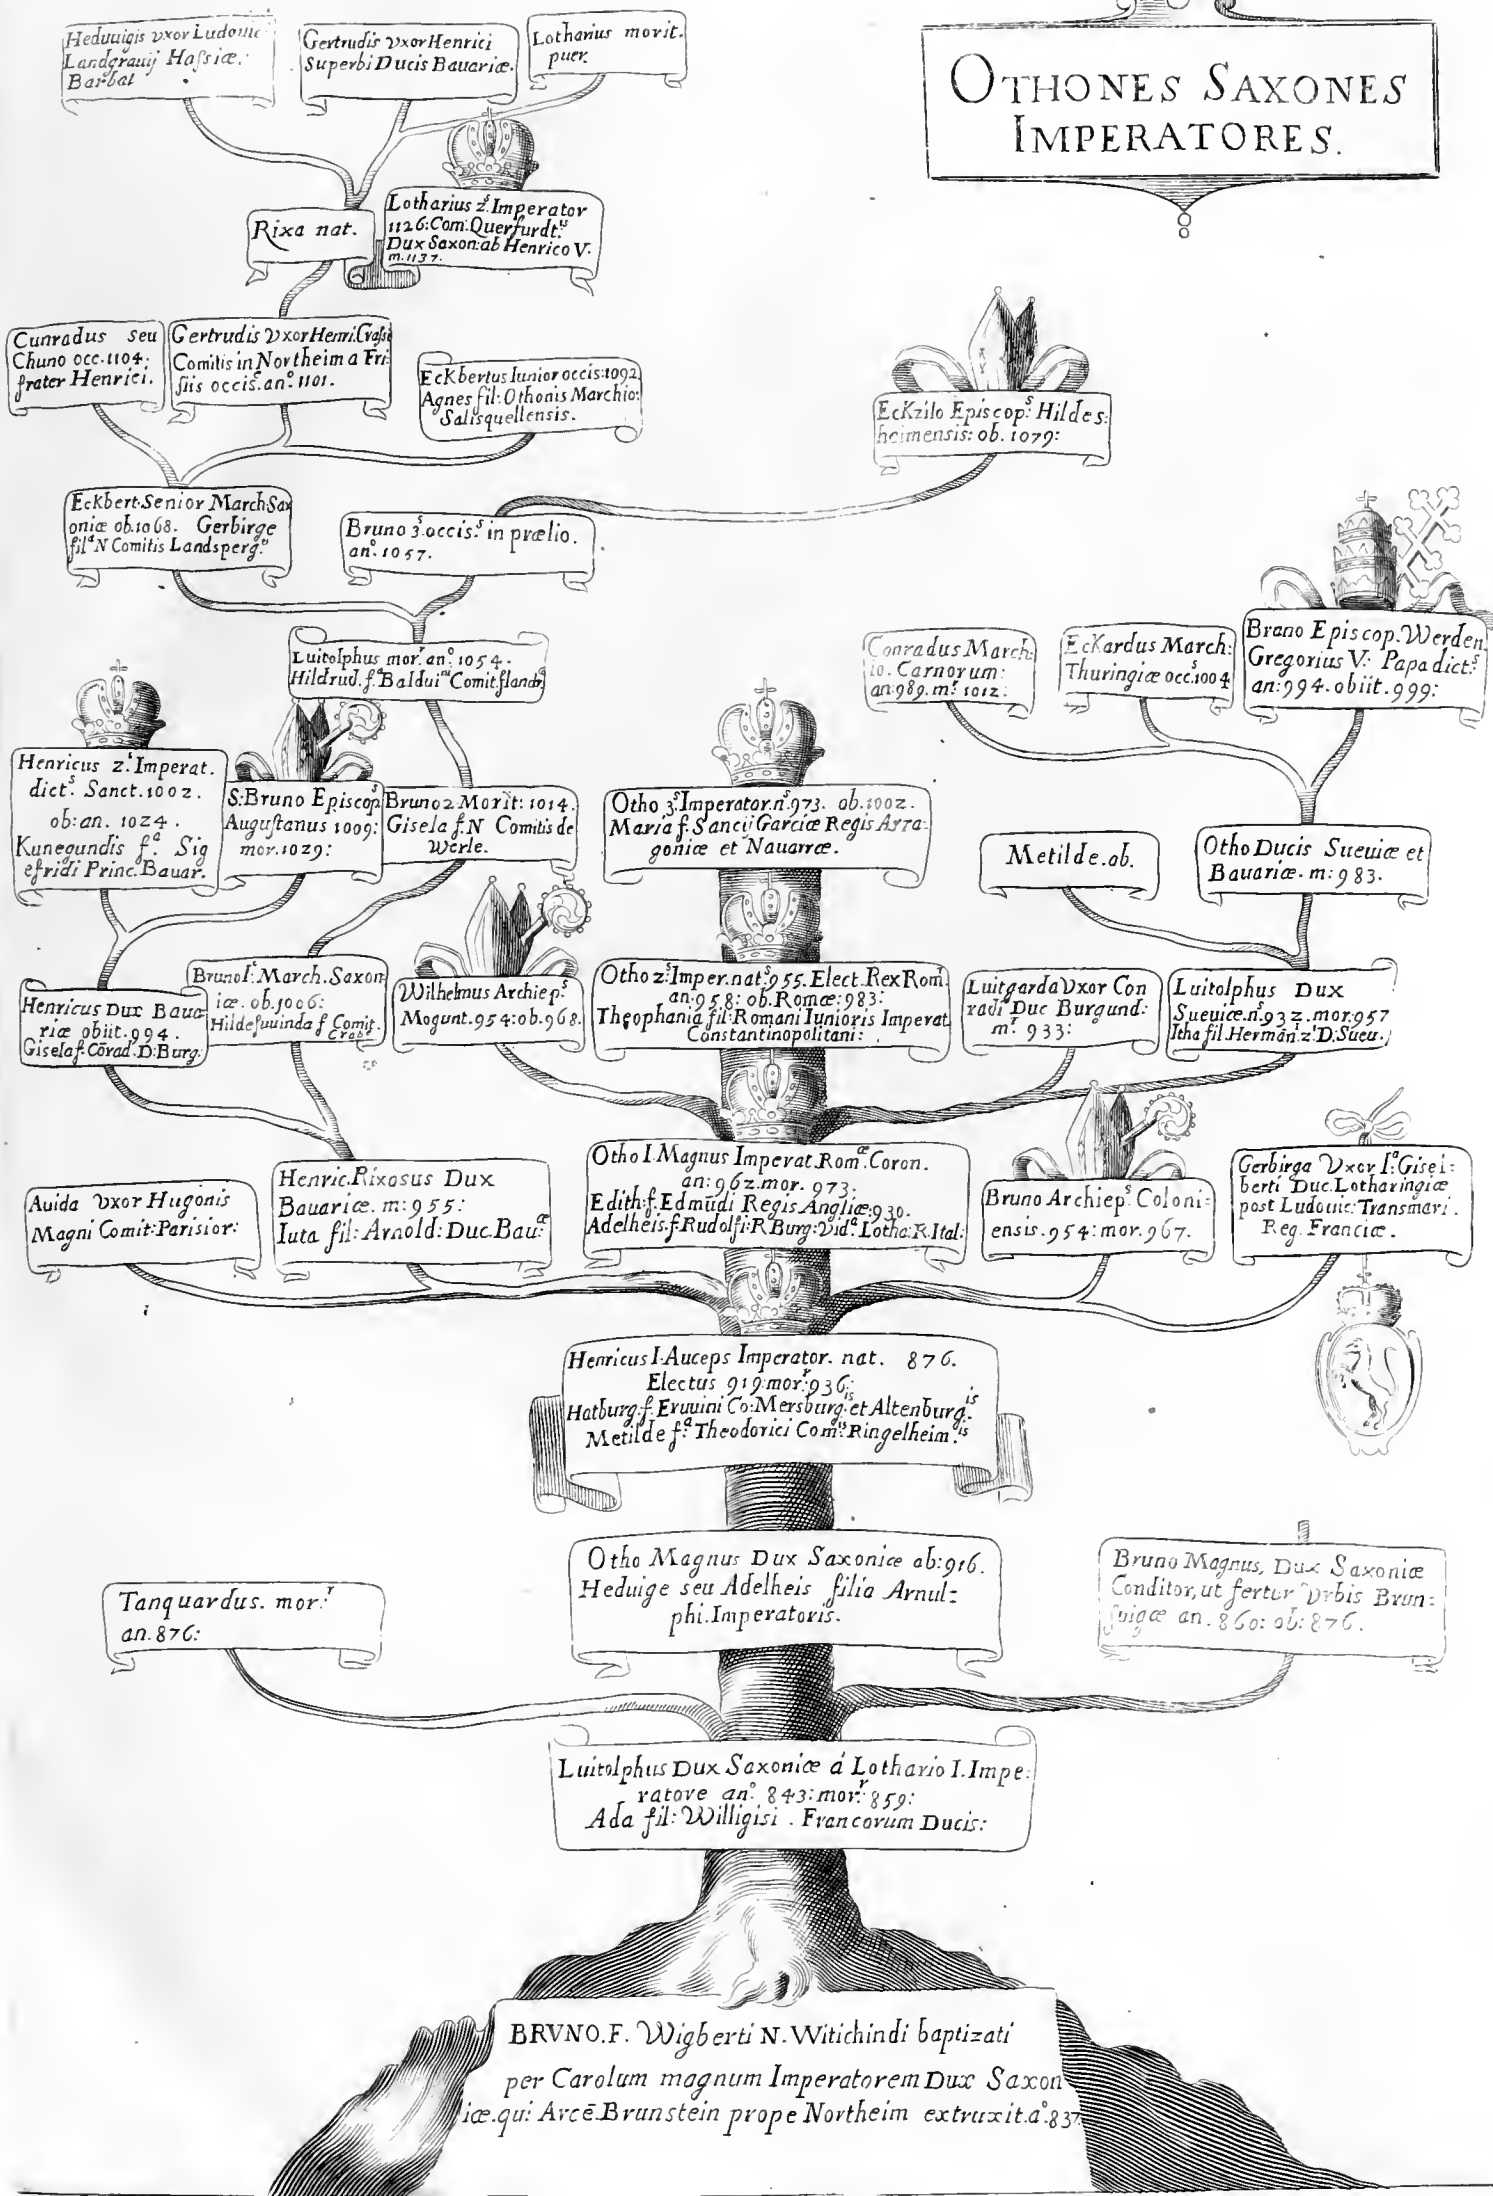 OTHONES SAXONES
IMPERATORES.
Heduuigis vxor Ludouic
Landgrauij Hassiæ.
Barbat
Gertrudis vxor Henrici
Superbi Ducis Bauariæ.
Lotharius morit.
puer.
Rixa nat.
Lotharius 2.s Imperator
1126: Com: Querfurdt.is
Dux Saxon: ab Henrico V.
m. 1137.
Cunradus seu
Chuno occ. 1104;
frater Henrici.
Gertrudis vxor Henri. Crassi
Comitis in Northeim a Fri
siis occis. an.o 1101.
Eckbertus Iunior occis: 1092.
Agnes fil: Othonis Marchio:
Salisquellensis.
Eckzilo Episcop.s Hildes:
heimensis: ob. 1079:
Eckbert. Senior March. Sax
oniæ ob. 1068. Gerbirge
fil.a N Comitis Landsperg.
Bruno 3.s occis.s in prælio.
an.o 1057.
Luitolphus mor.r an.o 1054.
Hildrud. f.a Balduini Comit. flandr.
Conradus March:
io. Carnorum:
an: 989. m.r 1012:
Eckardus March:
Thuringiæ occ.s 1004
Bruno Episcop. Werden.
Gregorius V: Papa dict.s
an: 994. obiit. 999:
Henricus 2.s Imperat.
dict.s Sanct. 1002.
ob: an. 1024.
Kunegundis f.a Sig
efridi Princ. Bauar.
S: Bruno Episcop.s
Augustanus 1009:
mor. 1029:
Bruno 2. Morit: 1014.
Gisela f. N Comitis de
Werle.
Otho 3.s Imperator. n.s 973. ob. 1002.
Maria f. Sancij Garciæ Regis Arra-
goniæ et Nauarræ.
Metilde. ob.
Otho Ducis Sueuiæ et
Bauariæ. m: 983.
Henricus Dux Baua
riæ obiit. 994.
Gisela f. Cōrad. D: Burg.
Bruno I.s March. Saxon
iæ. ob. 1006:
Hildesuuinda f Comit.
Wilhelmus Archiep.s
Mogunt. 954: ob. 968.
Otho 2.s Imper. nat.s 955. Elect. Rex Rom.
an. 958: ob. Romæ: 983:
Theophania fil: Romani Iunioris Imperat
Constantinopolitani:
Luitgarda Vxor Con
radi Duc Burgund:
m.r 933:
Luitolphus Dux
Sueuiæ. n.s 932. mor. 957
Itha fil. Hermān: 2.i D: Sueu.
Auida vxor Hugonis
Magni Comit: Parisior:
Henric. Rixosus Dux
Bauariæ. m: 955:
Iuta fil: Arnold: Duc. Bau.æ
Otho I. Magnus Imperat. Rom.æ Coron.
an: 962. mor. 973:
Edith: f. Edmūdi Regis Angliæ: 930.
Adelheis. f. Rudolfi: R Burg: Vid.a Lotha: R. Ital:
Bruno Archiep.s Coloni=
ensis. 954: mor. 967.
Gerbirga Vxor I.a Gisel=
berti Duc. Lotharingiæ
post Ludouic: Transmari.
Reg. Franciæ.
Henricus I. Auceps Imperator. nat. 876.
Electus 919: mor.r 936:
Hatburg. f. Eruuini Co: Mersburg.is et Altenburg.is
Metilde f.a Theodorici Com.is Ringelheim.is
Otho Magnus Dux Saxoniæ ob: 916.
Heduige seu Adelheis filia Arnul=
phi. Imperatoris.
Tanquardus. mor.r
an. 876:
Bruno Magnus, Dux Saxoniæ
Conditor, ut fertur Vrbis Brun=
suigæ an. 860: ob: 876.
Luitolphus Dux Saxoniæ á Lothario I. Impe:
ratore an.o 843: mor.r 859:
Ada fil: Willigisi . Francorum Ducis:
BRVNO. F. Wigberti N. Witichindi baptizati
per Carolum magnum Imperatorem Dux Saxon
iæ. qui Arcē Brunstein prope Northeim extruxit. a.o 837